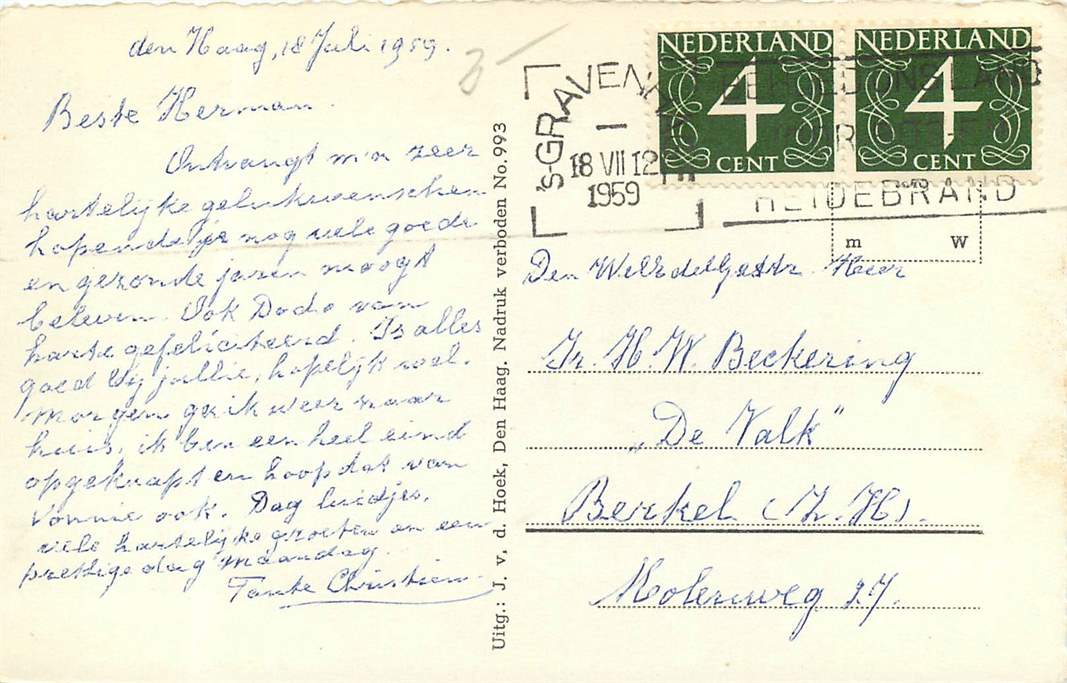 den Haag, 18 Juli 1959.
Beste Herman.
Ontvangt m'n zeer
hartelijke gelukwenschen
hopende je nog vele goede
en gezonde jaren moogt
beleven. Ook Dodo van
harte gefeliciteerd. Is alles
goed bij jullie, hopelijk wel.
Morgen ga ik weer naar
huis, ik ben een heel eind
opgeknapt en hoop dat van
Vonnie ook. Dag luidjes,
vele hartelijke groeten en een
prettige dag Maandag.
Tante Christien.
Uitg.: J. v. d. Hoek, Den Haag. Nadruk verboden No. 993
NEDERLAND
4
CENT
NEDERLAND
4
CENT
'S-GRAVENH
18 VII 12
1959
ONS LAND
HEIDEBRAND
m w
Den WelEdelGestr. Heer
Ir. H. W. Beckering
„De Valk"
Berkel (Z.H).
Molenweg 27.